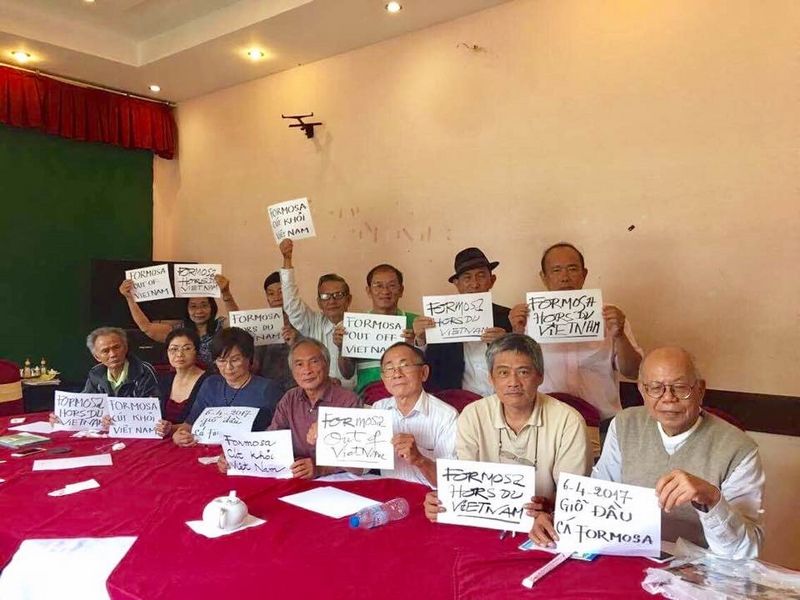 FORMOSA
CÚT KHỎI
VIỆT NAM
FORMOSA
OUT OF
VIETNAM
FORMOSA
HORS DU
VIETNAM
FORMOSA
HORS DU
VIETNAM
FORMOSA
OUT OFF
VIETNAM
FORMOSA
HORS DU
VIETNAM
FORMOSA
HORS DU
VIETNAM
FORMOSA
HORS DU
VIETNAM
FORMOSA
CÚT KHỎI
VIỆT NAM
6-4-2017
GIỖ ĐẦU
CÁ FO
FORMOSA
Cút khỏi
Việt Nam
FORMOSA
Out of
VIETNAM
FORMOSA
HORS DU
VIETNAM
6-4-2017
GIỖ ĐẦU
CÁ FORMOSA